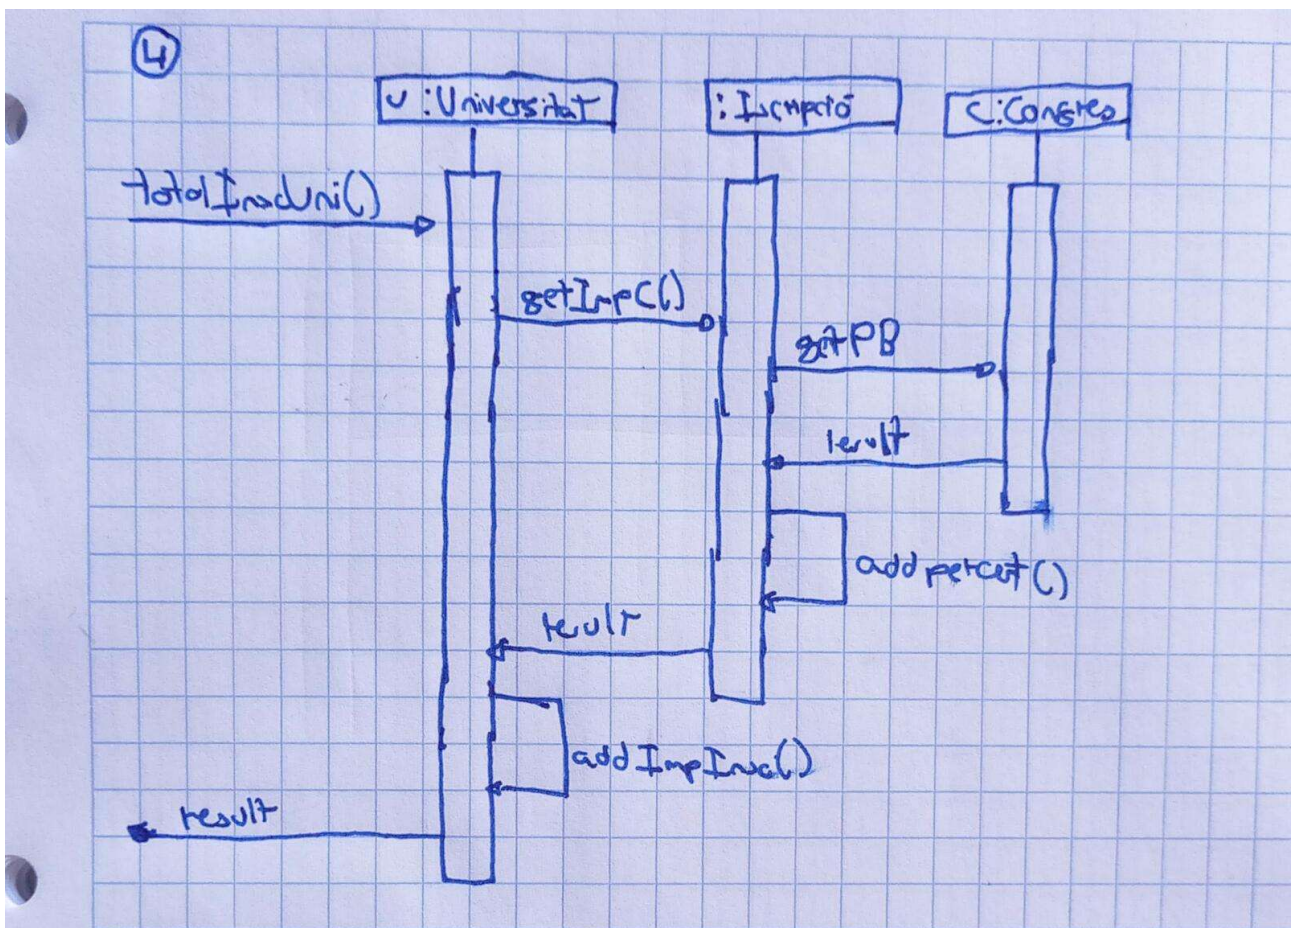 4
u :Universitat
:Iscripció
C:Congres
totalInscUni()
getImpC()
getPB
result
addpercet()
result
addImpInsc()
result